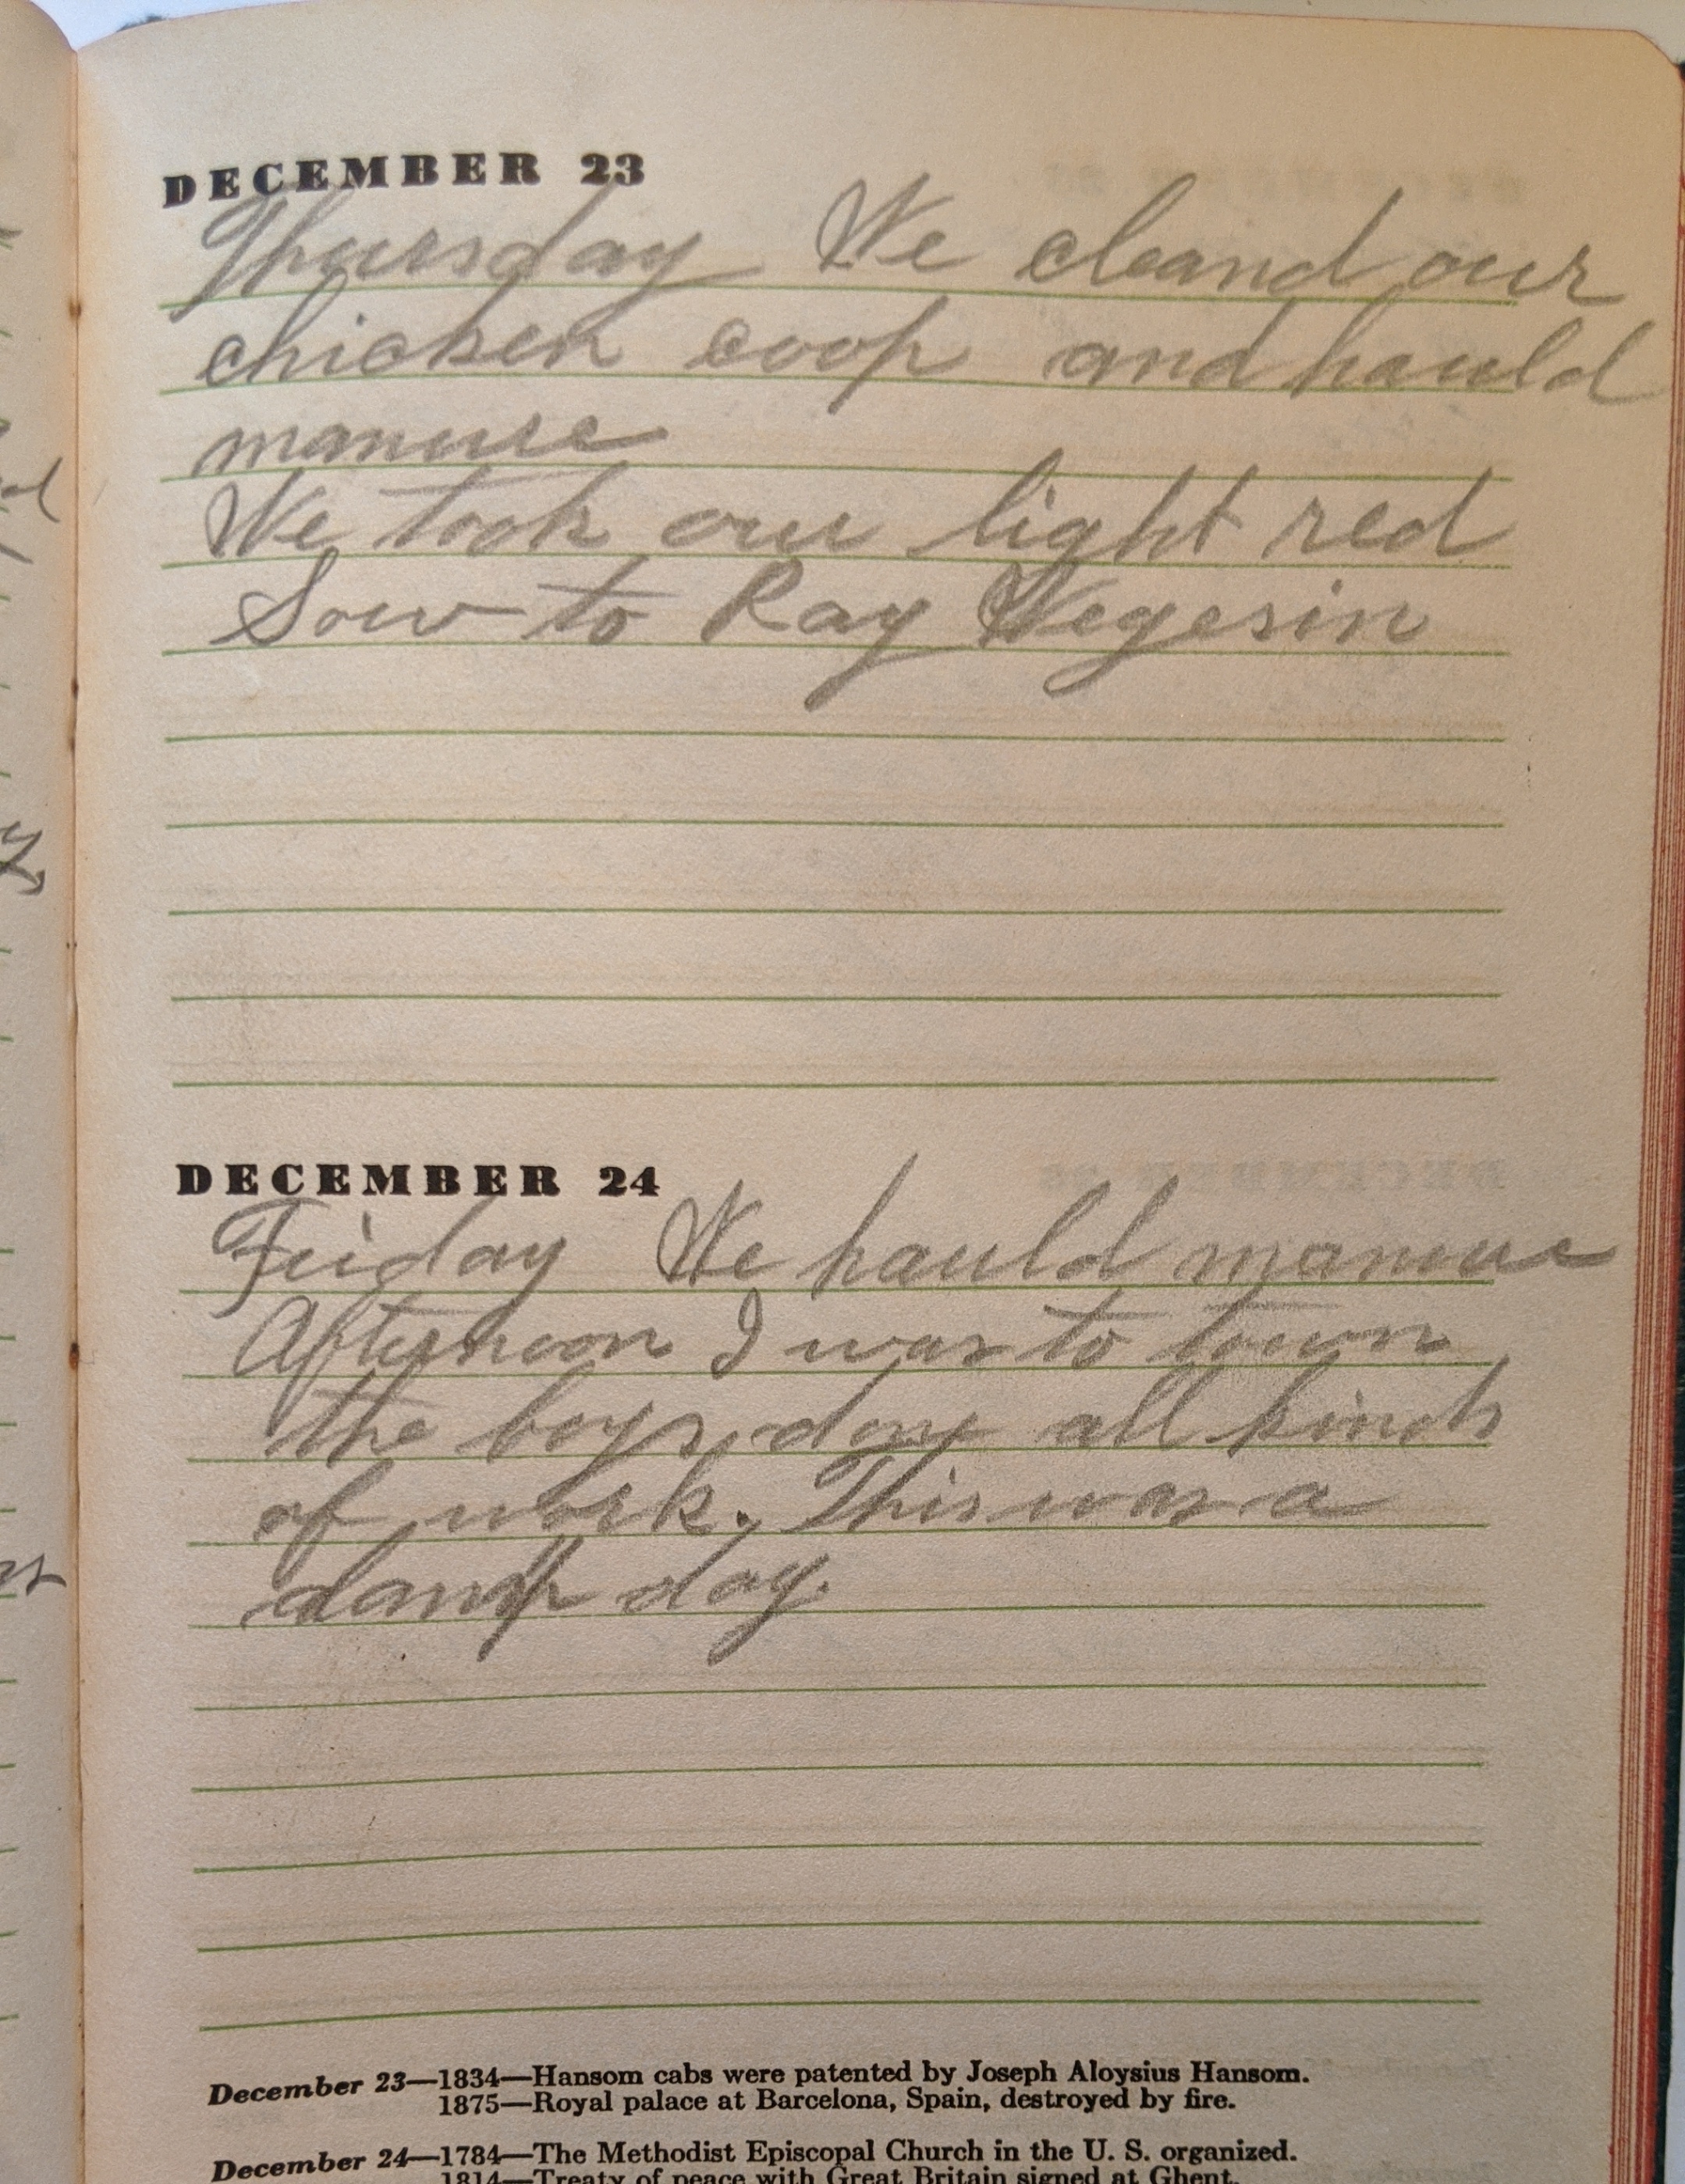 DECEMBER 23
Thursday We cleand our
chicken coop and hauld
manure
We took our light red
Sow to Ray Wegesin
DECEMBER 24
Friday We hauld manure
Afternoon I was to town
the boys done all kinds
of work. This was a
damp day.
December 23—1834—Hansom cabs were patented by Joseph Aloysius Hansom.
1875—Royal palace at Barcelona, Spain, destroyed by fire.
December 24—1784—The Methodist Episcopal Church in the U. S. organized.
1814—Treaty of peace with Great Britain signed at Ghent.